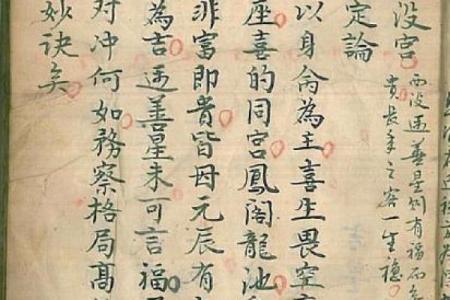 没宫
西没遇善星则有福而
贵长年之客一生稳
定論
以身命為主喜生畏空
座喜的同宫鳳阁龍池
非富即貴皆因元辰有
為吉遇善星未可言福
对冲何如務察格局髙
妙诀矣